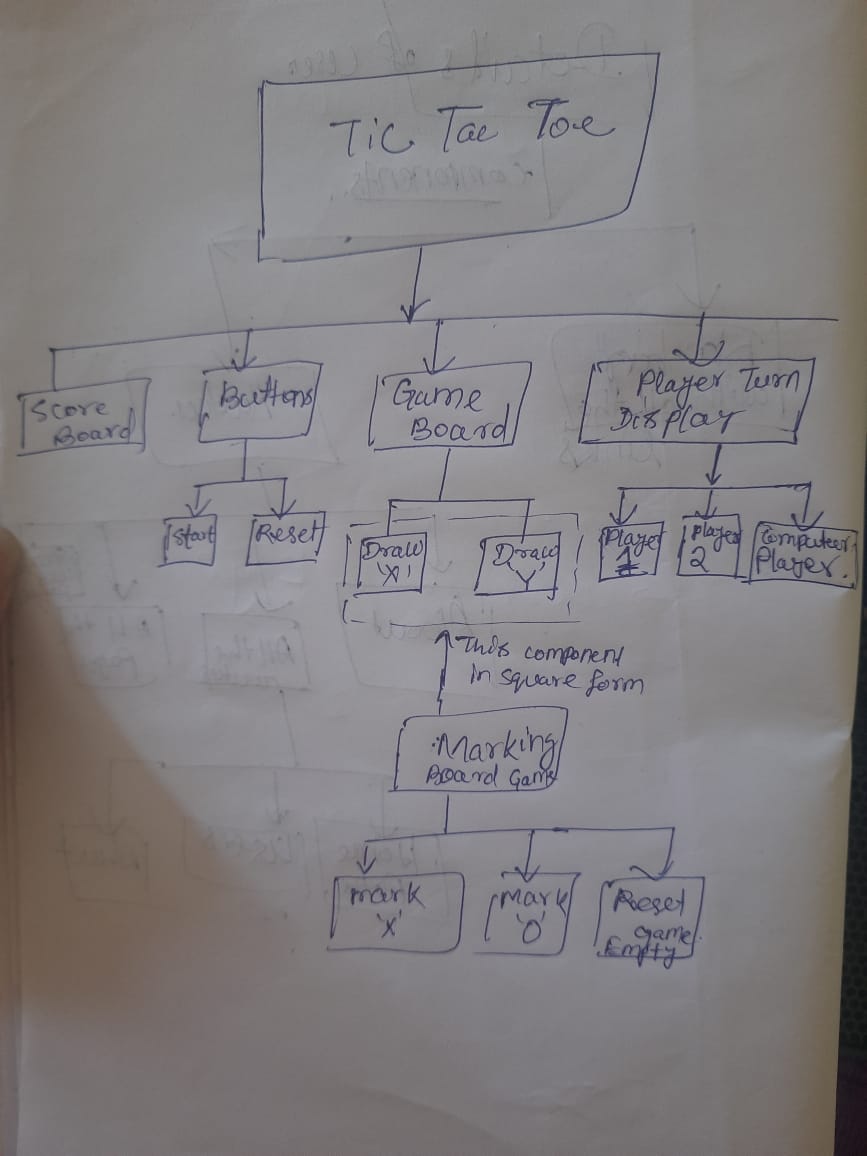 Tic Tac Toe
Score
Board
Buttons
Game
Board
Player Turn
Display
Start
Reset
Draw
'X'
Draw
'Y'
Player
1
Player
2
Computeer
Player.
This component
in square form
Marking
Board Game
mark
'X'
mark
'O'
Reset
game
Empty